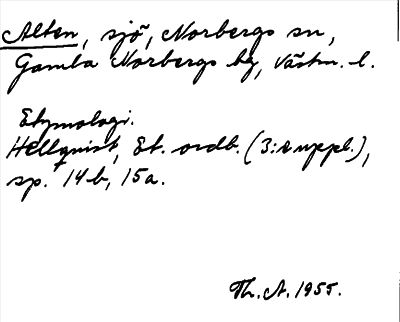 Alten, sjö, Norbergs sn,
Gamla Norbergs bg, Västm. l.
Etymologi.
Hellquist, Et. ordb. (3:e uppl.),
sp. 14b, 15a.
Th. A. 1955.